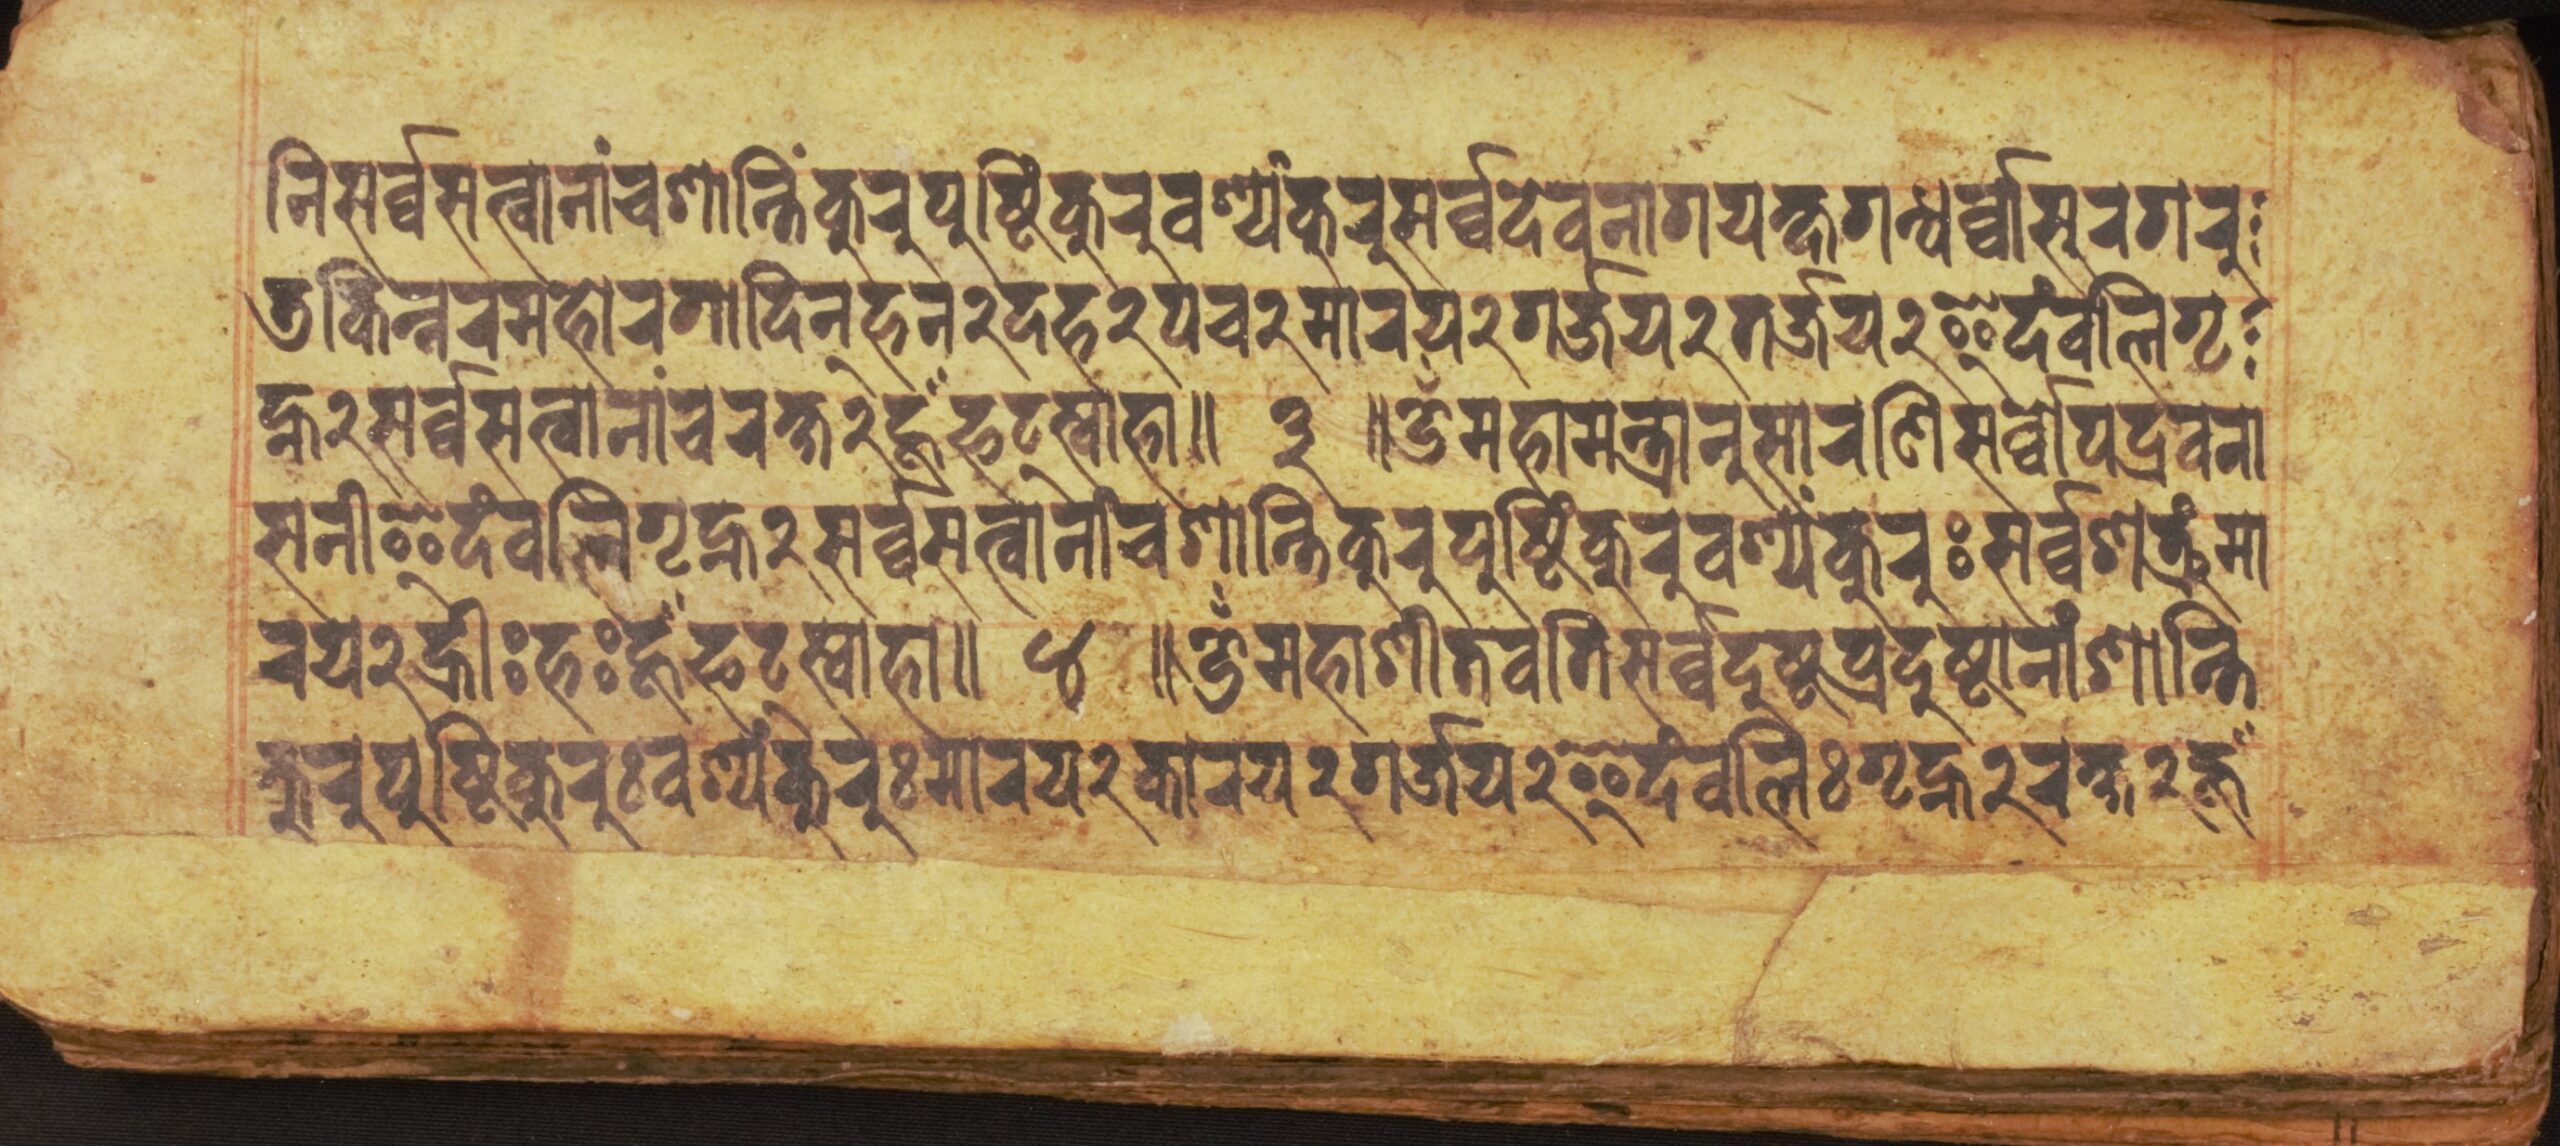 निसर्व्वसत्वानांचशान्तिंकुरुपुष्टिंकुरुवश्यंकुरुसर्व्वदेवनागयक्षगन्धर्व्वासुरगरु
डकिन्नरमहोरगादिन्हन२दह२पच२मारय२गर्ज्जय२तर्ज्जय२इदंवलिगृ
ह्न२सर्व्वसत्वानांचरक्ष२हूँफट्स्वाहा॥ ३ ॥ॐमहामन्त्रानुसारणिसर्व्वोपद्रवना
सनीइदंवलिगृह्न२सर्व्वसत्वानांचशान्तिकुरुपुष्टिंकुरुवश्यंकुरुःसर्व्वशत्रुंमा
रय२ह्रीःहःहूँफट्स्वाहा॥ ४ ॥ॐमहाशीतवतिसर्व्वदुष्टप्रदुष्टानांशान्ति
कुरुपुष्टिकुरुःवश्यंकुरुःमारय२कारय२गर्ज्जय२इदंवलिःगृह्न२रक्ष२हूँ